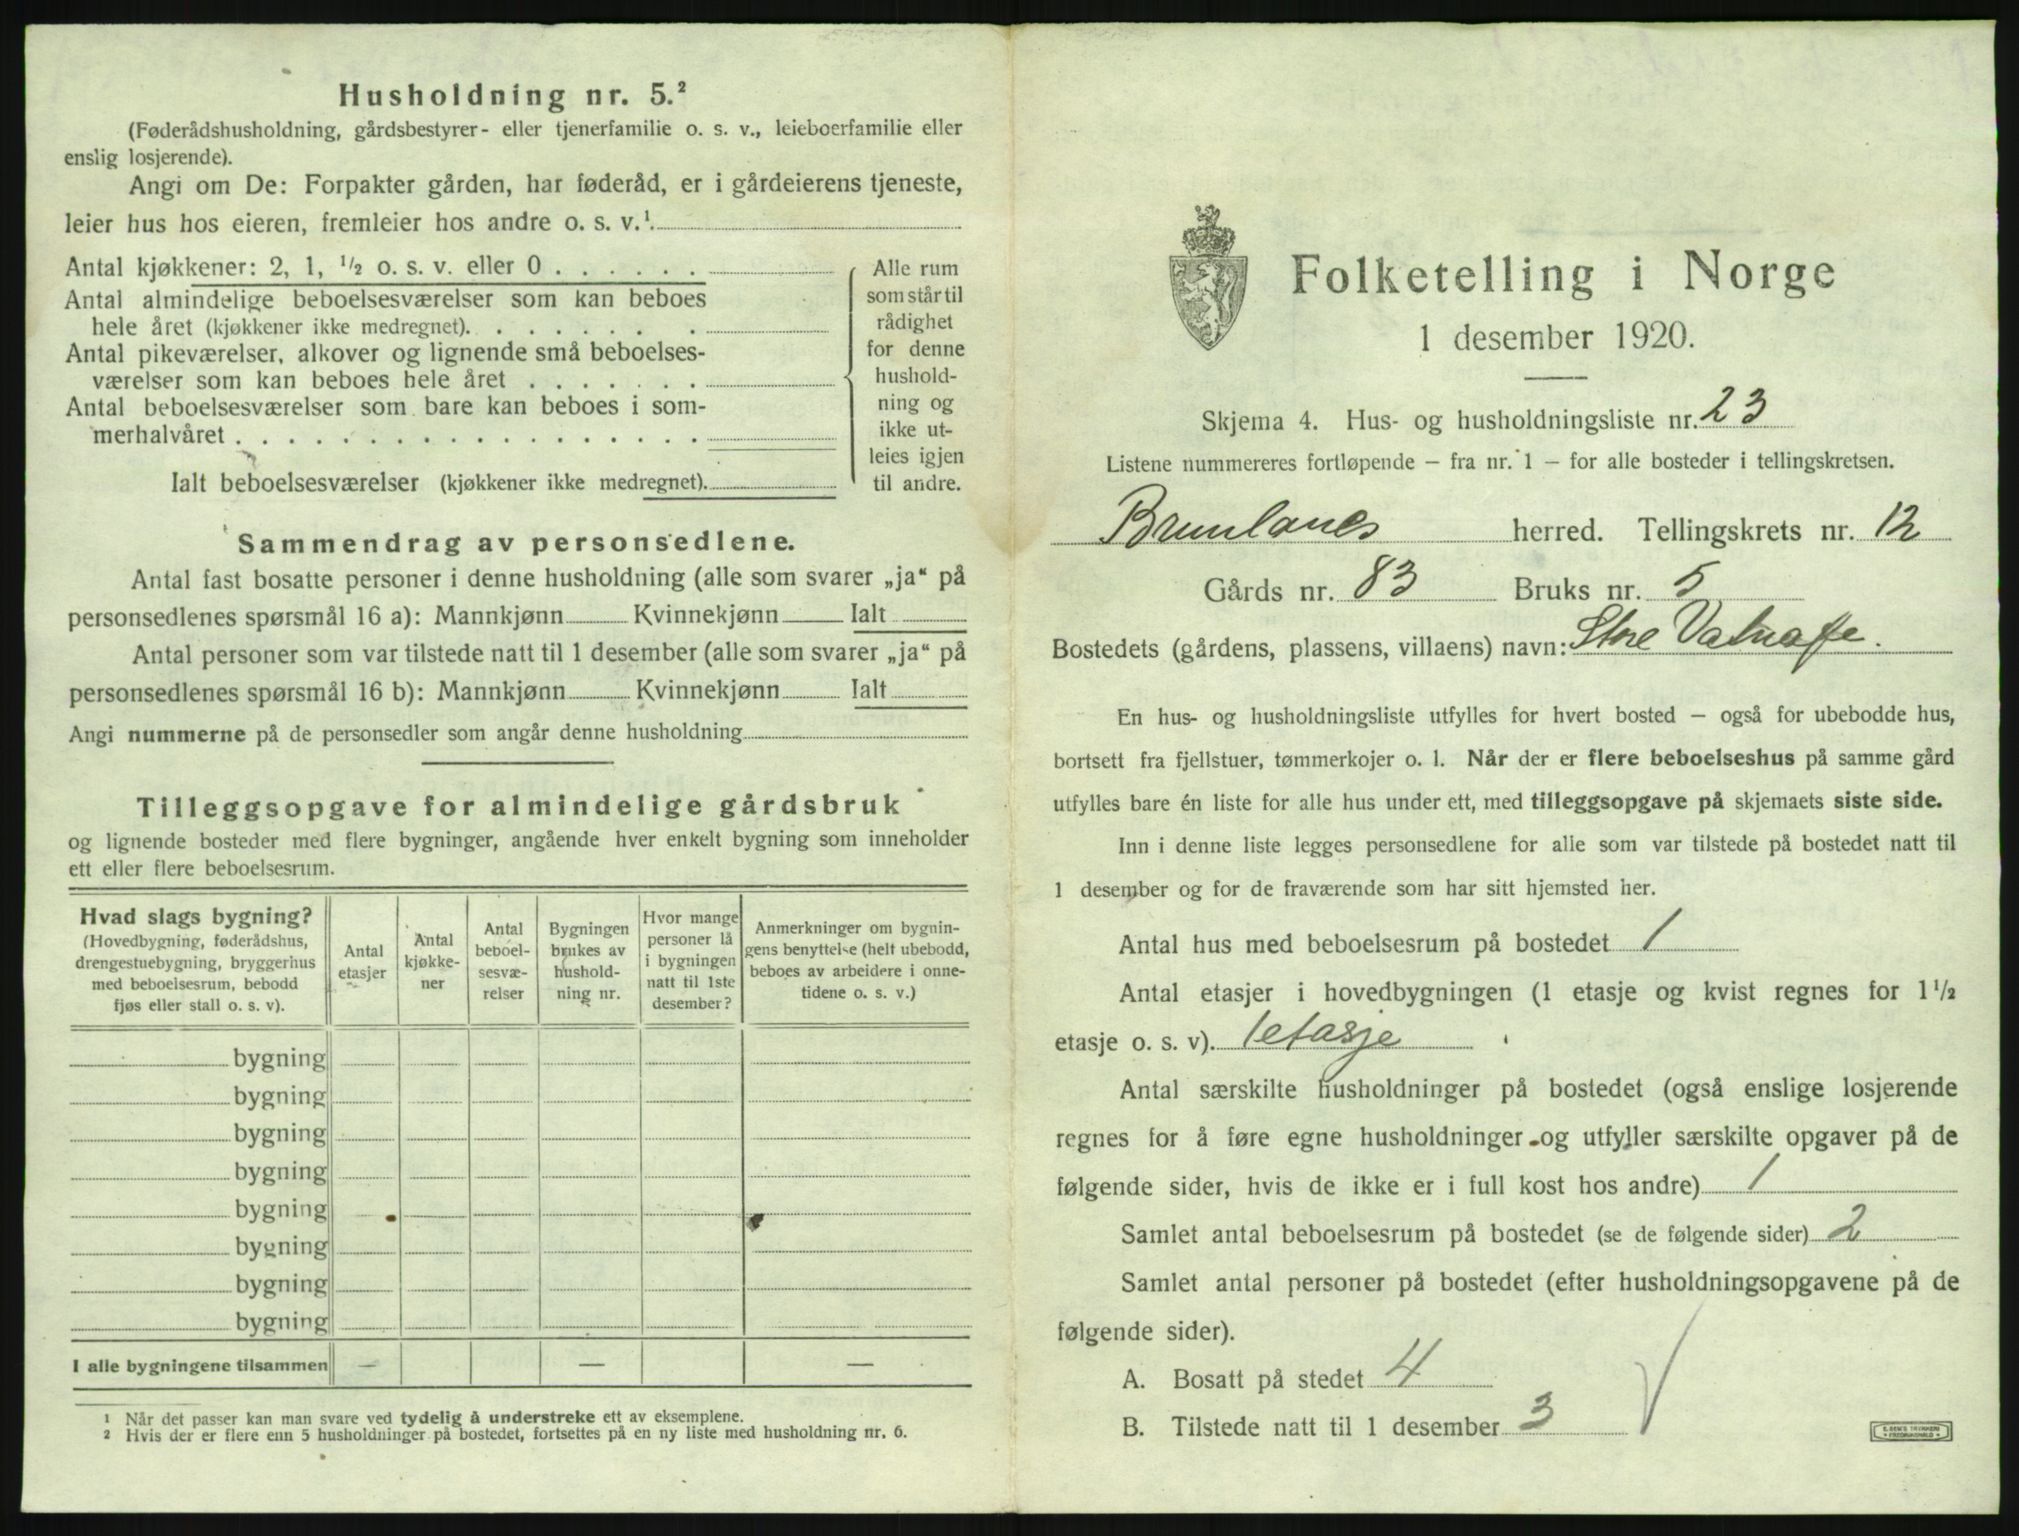 Husholdning nr. 5.²
(Føderådshusholdning, gårdsbestyrer- eller tjenerfamilie o. s. v., leieboerfamilie eller
enslig losjerende).
Angi om De: Forpakter gården, har føderåd, er i gårdeierens tjeneste,
leier hus hos eieren, fremleier hos andre o. s. v.¹.
Antal kjøkkener: 2, 1, ½ o. s. v. eller 0 . . . . . .
Antal almindelige beboelsesværelser som kan beboes
hele året (kjøkkener ikke medregnet). . . . . . . .
Antal pikeværelser, alkover og lignende små beboelses-
værelser som kan beboes hele året . . . . . . .
Antal beboelsesværelser som bare kan beboes i som-
merhalvåret . . . . . . . . . . . . . . . . . .
Ialt beboelsesværelser (kjøkkener ikke medregnet).
Alle rum
som står til
rådighet
for denne
hushold-
ning og
ikke ut-
leies igjen
til andre.
Sammendrag av personsedlene.
Antal fast bosatte personer i denne husholdning (alle som svarer „ja“ på
personsedlenes spørsmål 16 a): Mannkjønn Kvinnekjønn Ialt
Antal personer som var tilstede natt til 1 desember (alle som svarer „ja“ på
personsedlenes spørsmål 16 b): Mannkjønn Kvinnekjønn Ialt
Angi nummerne på de personsedler som angår denne husholdning
Tilleggsopgave for almindelige gårdsbruk
og lignende bosteder med flere bygninger, angående hver enkelt bygning som inneholder
ett eller flere beboelsesrum.
Hvad slags bygning?
(Hovedbygning, føderådshus,
drengestuebygning, bryggerhus
med beboelsesrum, bebodd
fjøs eller stall o. s. v).
Antal
etasjer
Antal
kjøkke-
ner
Antal
beboel-
sesvæ-
relser
Bygningen
brukes av
hushold-
ning nr.
Hvor mange
personer lå
i bygningen
natt til 1ste
desember?
Anmerkninger om bygnin-
gens benyttelse (helt ubebodd,
beboes av arbeidere i onne-
tidene o. s. v.)
bygning
bygning
bygning
bygning
bygning
bygning
bygning
bygning
I alle bygningene tilsammen — — —
1 Når det passer kan man svare ved tydelig å understreke ett av eksemplene.
2 Hvis der er flere enn 5 husholdninger på bostedet, fortsettes på en ny liste med husholdning nr. 6.
Folketelling i Norge
1 desember 1920.
Skjema 4. Hus- og husholdningsliste nr. 23
Listene nummereres fortløpende – fra nr. 1 – for alle bosteder i tellingskretsen.
Brunlanes herred. Tellingskrets nr. 12
Gårds nr. 83 Bruks nr. 5
Bostedets (gårdens, plassens, villaens) navn: Store
En hus- og husholdningsliste utfylles for hvert bosted – også for ubebodde hus,
bortsett fra fjellstuer, tømmerkojer o. l. Når der er flere beboelseshus på samme gård
utfylles bare én liste for alle hus under ett, med tilleggsopgave på skjemaets siste side.
Inn i denne liste legges personsedlene for alle som var tilstede på bostedet natt til
1 desember og for de fraværende som har sitt hjemsted her.
Antal hus med beboelsesrum på bostedet 1
Antal etasjer i hovedbygningen (1 etasje og kvist regnes for 1½
etasje o. s. v). 1 etasje
Antal særskilte husholdninger på bostedet (også enslige losjerende
regnes for å føre egne husholdninger og utfyller særskilte opgaver på de
følgende sider, hvis de ikke er i full kost hos andre) 1
Samlet antal beboelsesrum på bostedet (se de følgende sider) 2
Samlet antal personer på bostedet (efter husholdningsopgavene på de
følgende sider).
A. Bosatt på stedet 4
B. Tilstede natt til 1 desember 3